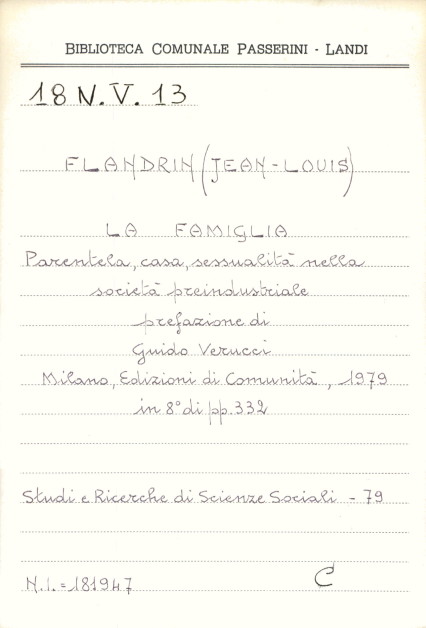 BIBLIOTECA COMUNALE PASSERINI - LANDI
18 N. V. 13
FLANDRIN (JEAN-LOUIS)
LA FAMIGLIA
Parentela, casa, sessualità nella
società preindustriale
prefazione di
Guido Verucci
Milano, Edizioni di Comunità, 1979
in 8° di pp. 332
Studi e Ricerche di Scienze Sociali - 79
N.I. = 181947
C